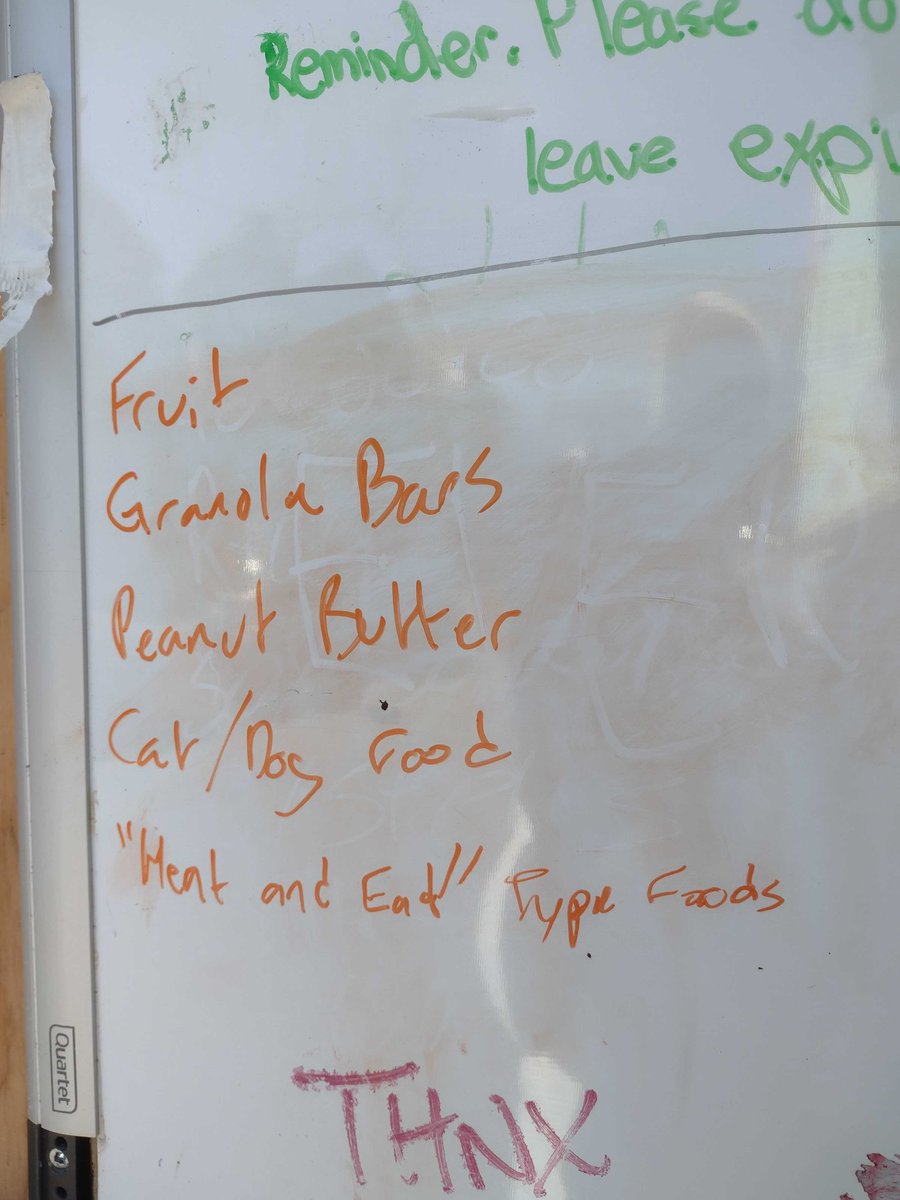 Reminder. Please do
leave expi
Fruit
Granola Bars
Peanut Butter
Cat/Dog Food
"Heat and Eat" Type Foods
THNX
Quartet